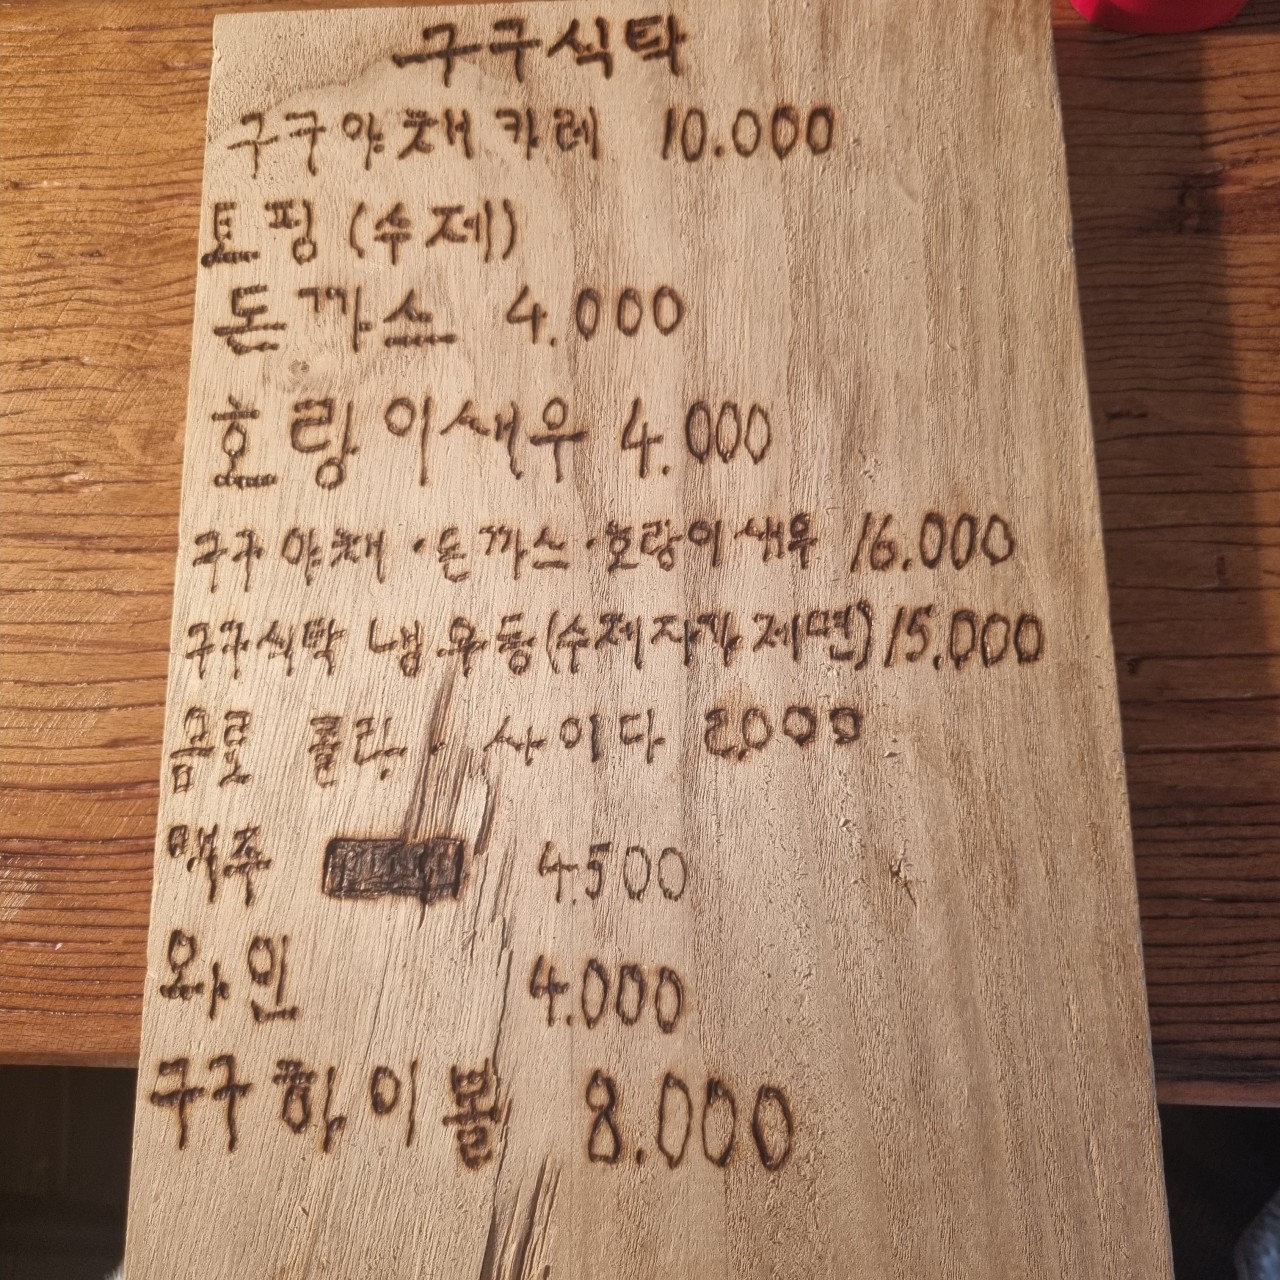 구구식탁
구구야채 카레 10.000
토핑 (수제)
돈까스 4.000
호랑이새우 4.000
구구 야채 · 돈까스 · 호랑이 새우 16.000
구구식탁 냉우동(수제 자가 제면) 15.000
음료 콜라. 사이다 2.000
맥주 4.500
와인 4.000
구구 하이볼 8.000